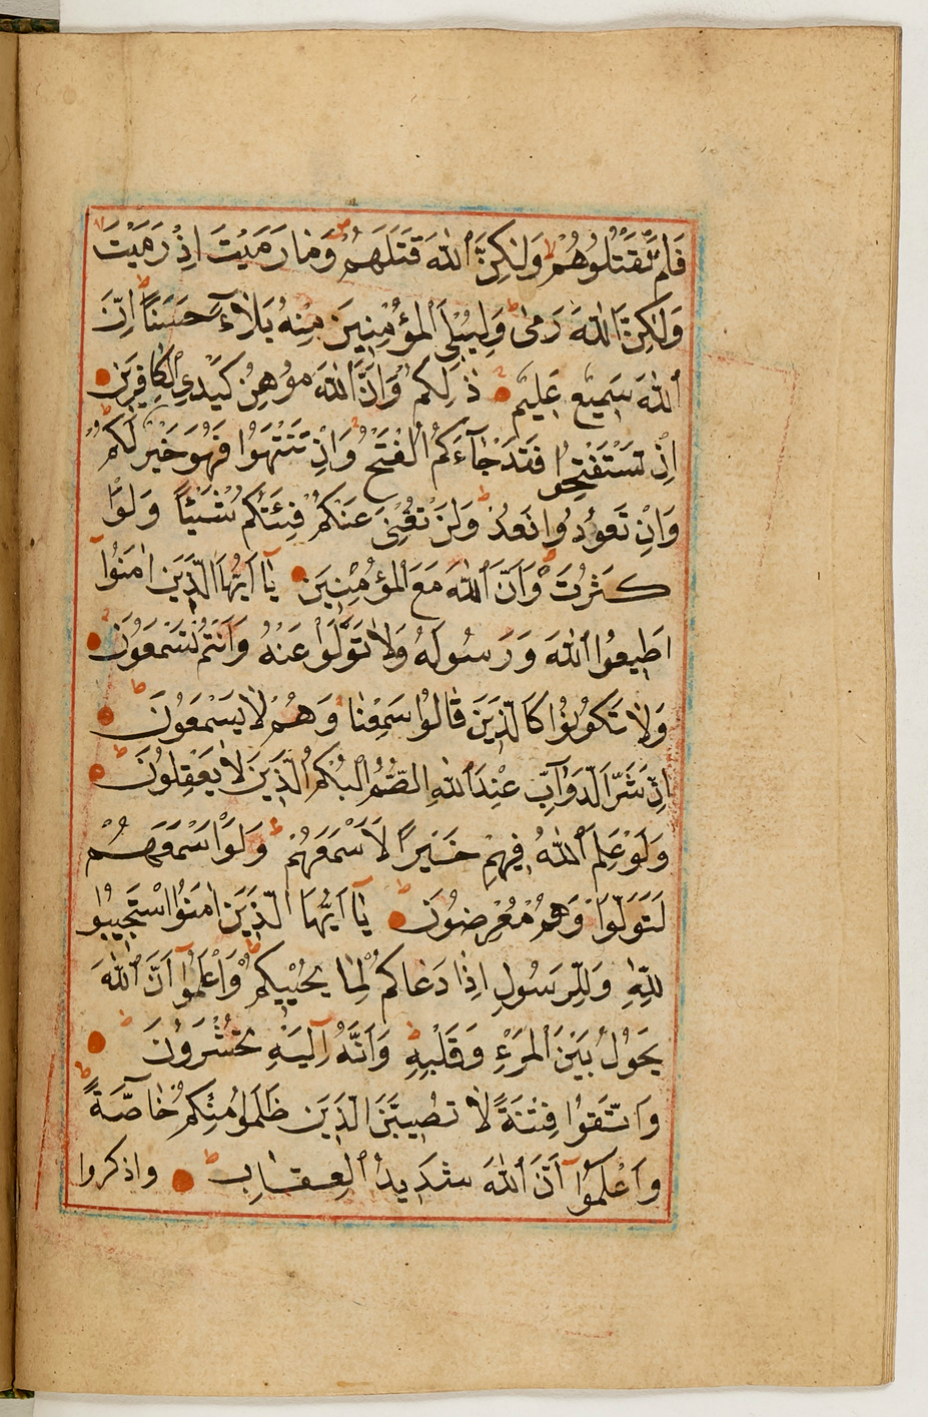 فَلَمْ تَقْتُلُوهُمْ وَلٰكِنَّ ٱللّٰهَ قَتَلَهُمْ وَمٰا رَمَيْتَ اِذْ رَمَيْتَ
وَلٰكِنَّ اللّٰهَ رَمىٰ وَلِيُبْلِيَ ٱلْمُؤْمِنِينَ مِنْهُ بَلٰآءً حَسَنًا اِنَّ
ٱللّٰهَ سَمِيعٌ عَلِيمٌ ذٰلِكُمْ وَاَنَّ ٱللّٰهَ مُوهِنُ كَيْدِ ٱلْكٰافِرِينَ
اِنْ تَسْتَفْتِحُوا فَقَدْ جٰآءَكُمُ ٱلْفَتْحُ وَاِنْ تَنْتَهُوا فَهُوَ خَيْرٌ لَكُمْ
وَاِنْ تَعُودُوا نَعُدْ وَلَنْ تُغْنِيَ عَنْكُمْ فِئَتُكُمْ شَيْئًا وَلَوْ
كَثُرَتْ وَاَنَّ ٱللّٰهَ مَعَ ٱلْمُؤْمِنِينَ يٰآ اَيُّهَا الَّذِينَ اٰمَنُوٓا
اَطِيعُوا ٱللّٰهَ وَرَسُولَهُ وَلٰا تَوَلَّوْا عَنْهُ وَاَنْتُمْ تَسْمَعُونَ
وَلٰا تَكُونُوا كَالَّذِينَ قٰالُوا سَمِعْنٰا وَهُمْ لٰا يَسْمَعُونَ
اِنَّ شَرَّ ٱلدَّوٰآبِّ عِنْدَ ٱللّٰهِ الصُّمُّ ٱلْبُكْمُ ٱلَّذِينَ لٰا يَعْقِلُونَ
وَلَوْ عَلِمَ ٱللّٰهُ فِيهِمْ خَيْرًا لَاَسْمَعَهُمْ وَلَوْ اَسْمَعَهُمْ
لَتَوَلَّوْا وَهُمْ مُعْرِضُونَ يٰآ اَيُّهَا الَّذِينَ اٰمَنُوا ٱسْتَجِيبُوا
لِلّٰهِ وَلِلرَّسُولِ اِذٰا دَعٰاكُمْ لِمٰا يُحْيِيكُمْ وَاعْلَمُوٓا اَنَّ ٱللّٰهَ
يَحُولُ بَيْنَ ٱلْمَرْءِ وَقَلْبِهِ وَاَنَّهُ اِلَيْهِ تُحْشَرُونَ
وَاتَّقُوا فِتْنَةً لٰا تُصِيبَنَّ الَّذِينَ ظَلَمُوا مِنْكُمْ خٰآصَّةً
وَاعْلَمُوٓا اَنَّ ٱللّٰهَ شَدِيدُ ٱلْعِقٰابِ واذكروا